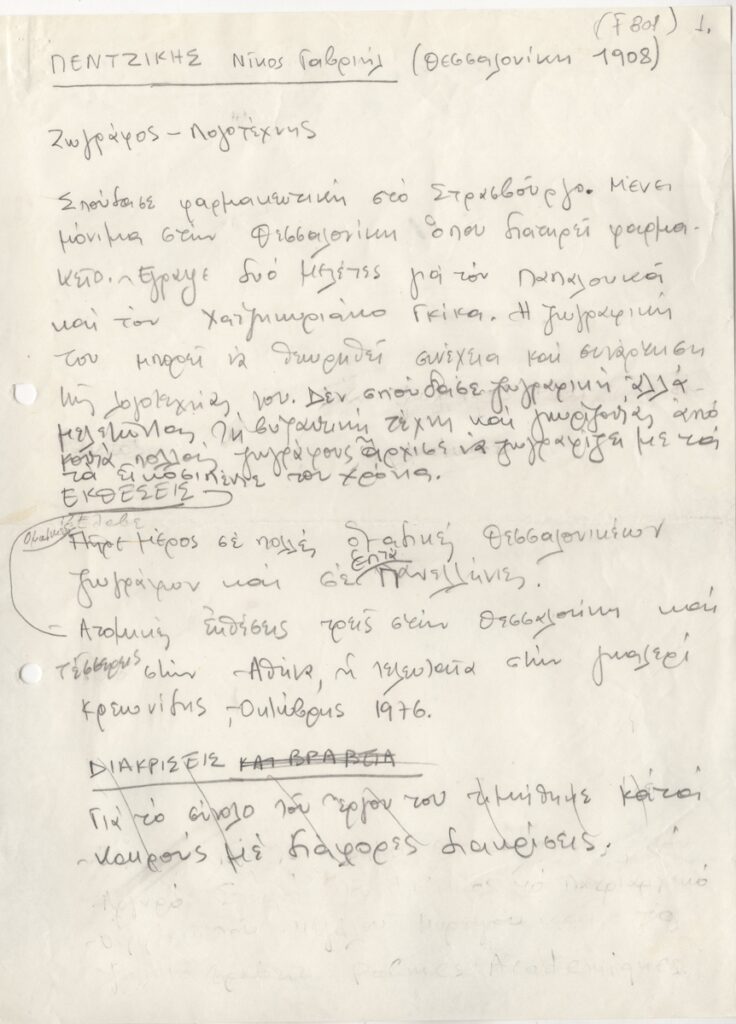 (F801) 1.
ΠΕΝΤΖΙΚΗΣ Νίκος Γαβριήλ (Θεσσαλονίκη 1908)
Ζωγράφος - Λογοτέχνης
Σπούδασε φαρμακευτική στό Στρασβούργο. Μένει
μόνιμα στήν Θεσσαλονίκη ὅπου διατηρεῖ φαρμα-
κεῖο. Ἔγραψε δυό μελέτες γιά τόν Παπαλουκά
καί τόν Χατζηκυριάκο Γκίκα. Ἡ ζωγραφική
του μπορεῖ νά θεωρηθεῖ συνέχεια καί συνάρτηση
τῆς λογοτεχνίας του. Δέν σπούδασε ζωγραφική ἀλλά
μελετώντας τή βυζαντινή τέχνη καί γνωρίζοντας ἀπό
κοντά πολλούς ζωγράφους ἄρχισε νά ζωγραφίζει μετά
τά εἰκοσιπέντε του χρόνια.
ΕΚΘΕΣΕΙΣ
Ἔλαβε
Πῆρε μέρος σέ πολλές ὁμαδικές Θεσσαλονικέων
ἑπτά
ζωγράφων καί σέ Πανελλήνιες.
- Ατομικές ἐκθέσεις τρεῖς στήν Θεσσαλονίκη καί
τέσσερεις στήν Αθήνα, ἡ τελευταῖα στήν γκαλερί
Κρεωνίδης, Οκτώβρης 1976.
ΔΙΑΚΡΙΣΕΙΣ ΚΑΙ ΒΡΑΒΕΙΑ
Γιά τό σύνολο τοῦ ἔργου του τιμήθηκε κατά
καιρούς μέ διάφορες διακρίσεις.
Palmes Académiques.